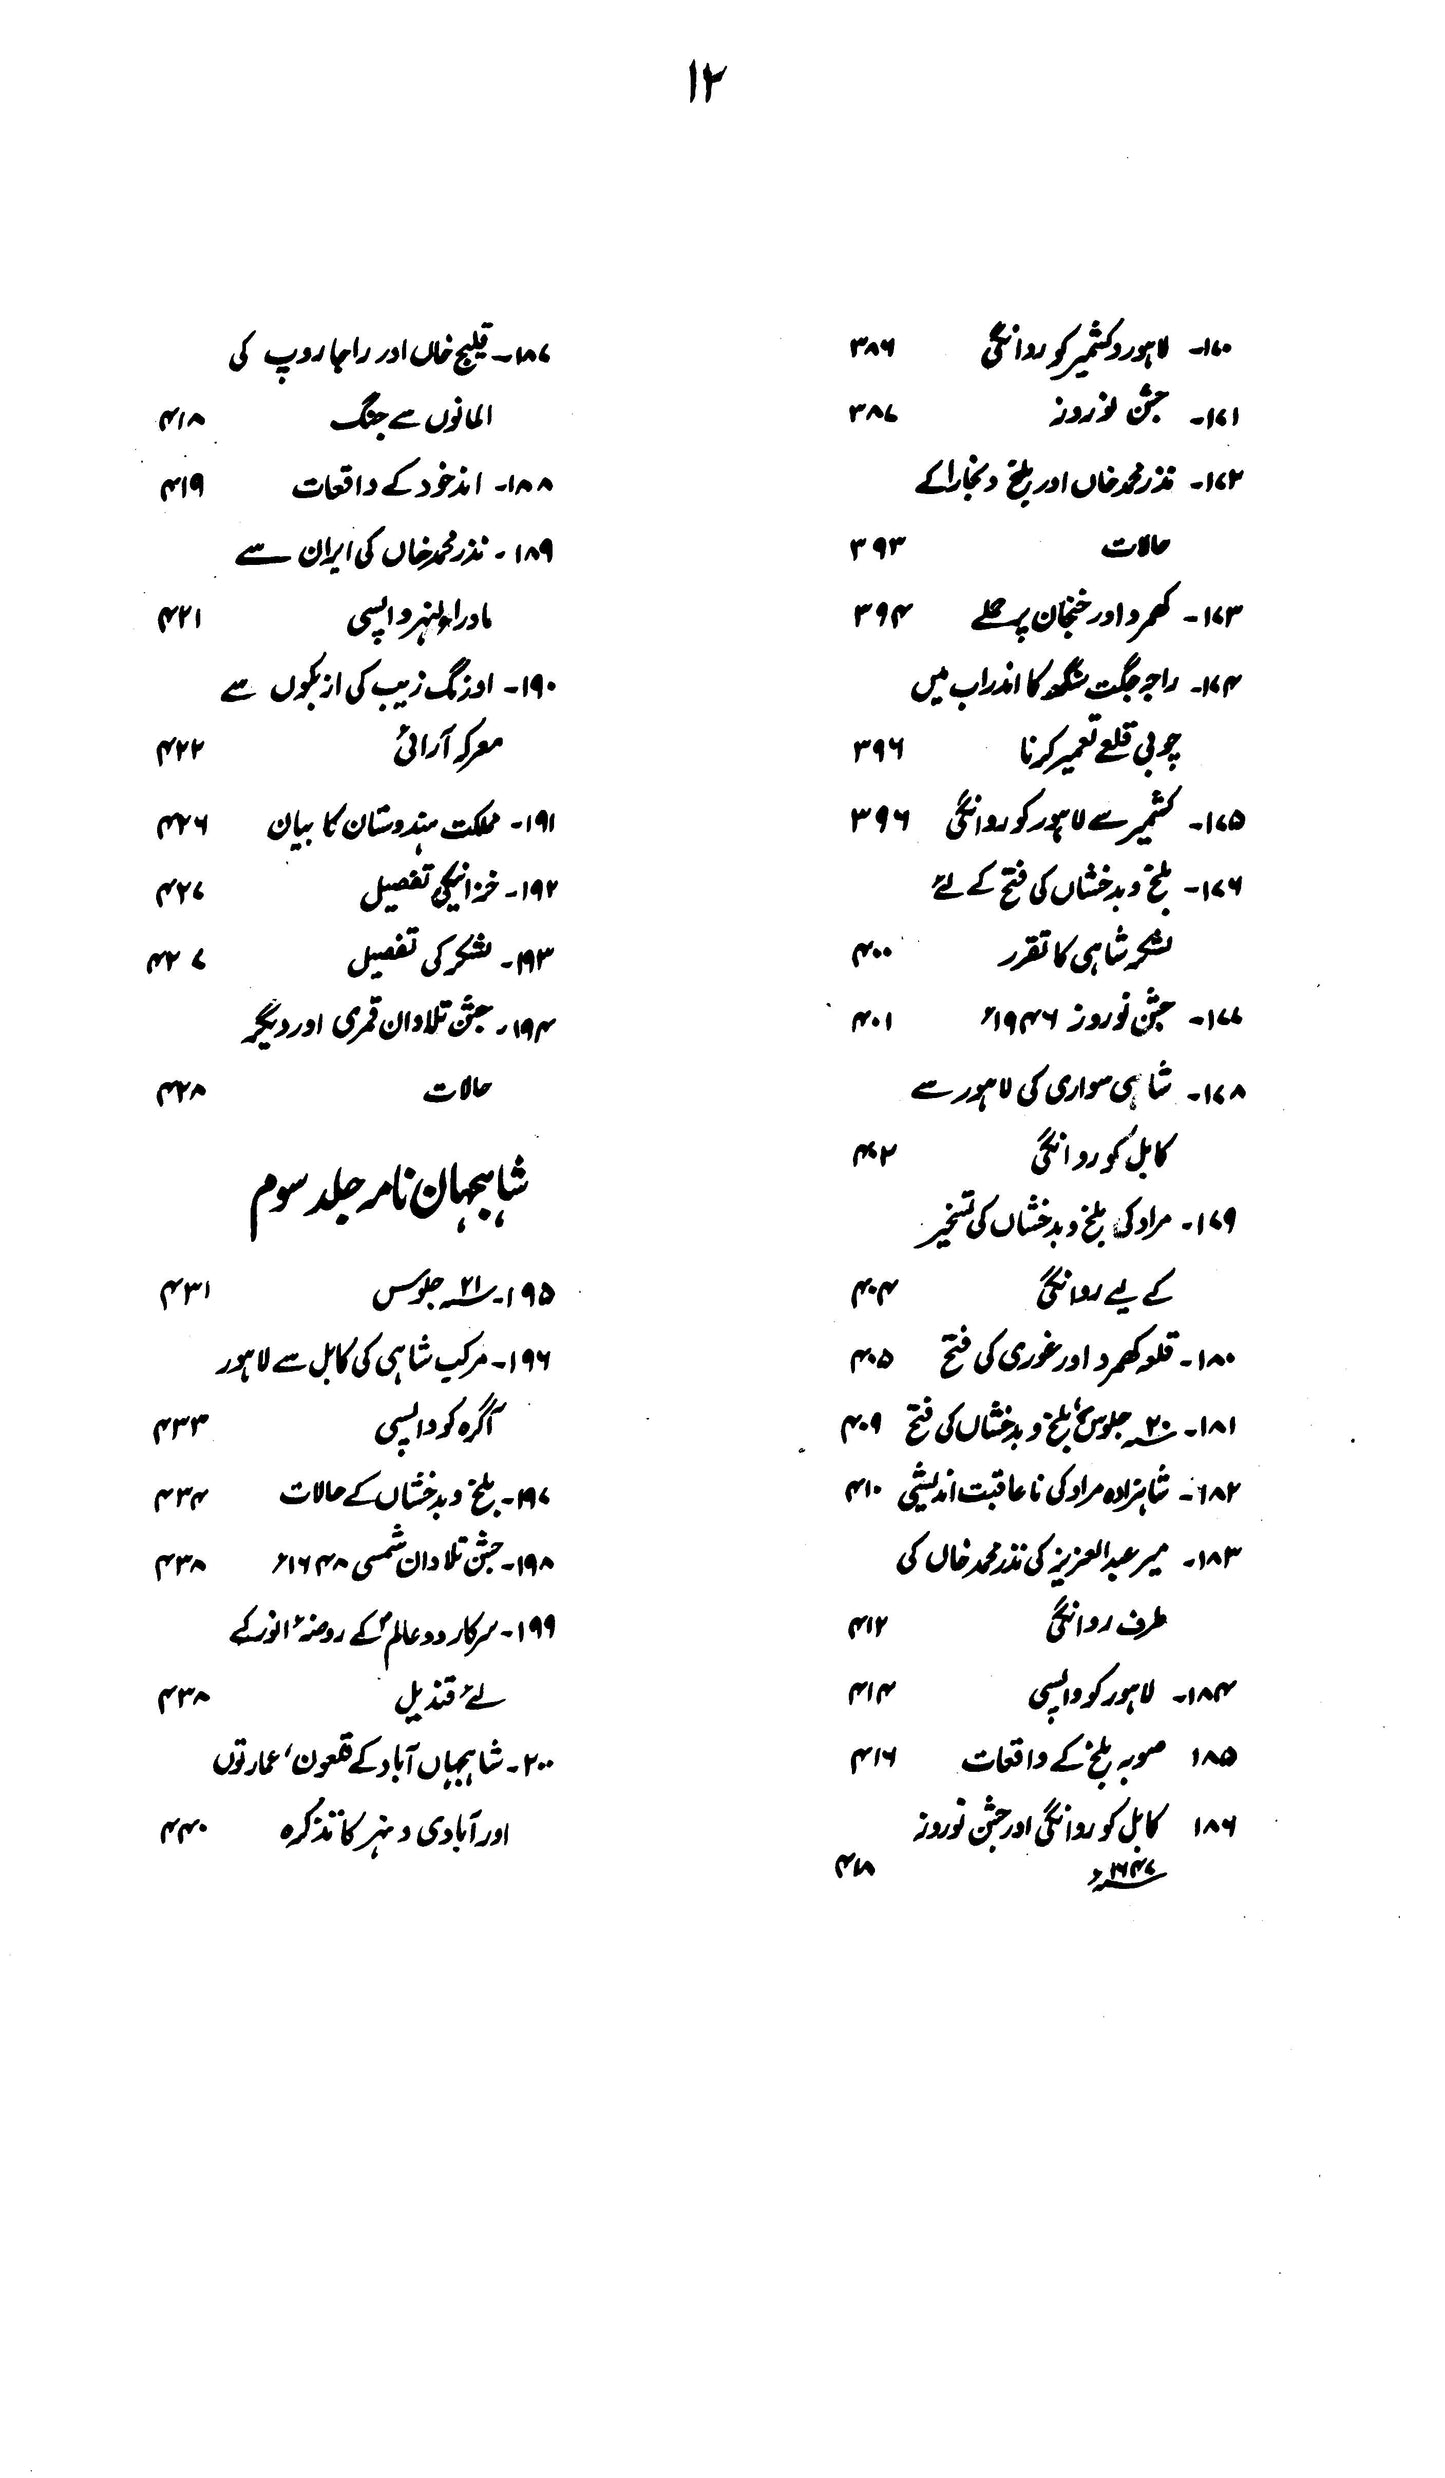 ۱۲
۱۷۰- لاہور و کشمیر کو روانگی ۳۸۶
۱۷۱- جشن نوروز ۳۸۷
۱۷۲- نذر محمد خاں اور بلخ و بخارا کے
حالات ۳۹۳
۱۷۳- کھمرد اور خنجان پر حملے ۳۹۴
۱۷۴- راجہ جگت سنگھ کا اندراب میں
چوبی قلعے تعمیر کرنا ۳۹۶
۱۷۵- کشمیر سے لاہور کو روانگی ۳۹۶
۱۷۶- بلخ و بدخشاں کی فتح کے لئے
لشکر شاہی کا تقرر ۴۰۰
۱۷۷- جشن نوروز ۱۹۴۶ء ۴۰۱
۱۷۸- شاہی سواری کی لاہور سے
کابل کو روانگی ۴۰۲
۱۷۹- مراد کی بلخ و بدخشاں کی تسخیر
کے لیے روانگی ۴۰۴
۱۸۰- قلعہ کھمرد اور غوری کی فتح ۴۰۵
۱۸۱- ۲۰؁ جلوس، بلخ و بدخشاں کی فتح ۴۰۹
۱۸۲- شاہزادہ مراد کی ناعاقبت اندیشی ۴۱۰
۱۸۳- میر عبدالعزیز کی نذر محمد خاں کی
طرف روانگی ۴۱۲
۱۸۴- لاہور کو واپسی ۴۱۴
۱۸۵ صوبہ بلخ کے واقعات ۴۱۶
۱۸۶ کابل کو روانگی اور جشن نوروز
۱۶۴۷؁ء ۴۱۸
۱۸۷- قلیج خاں اور راجا روپ کی
المانوں سے جنگ ۴۱۸
۱۸۸- اندخود کے واقعات ۴۱۹
۱۸۹- نذر محمد خاں کی ایران سے
ماوراء النہر واپسی ۴۲۱
۱۹۰- اورنگ زیب کی ازبکوں سے
معرکہ آرائی ۴۲۲
۱۹۱- مملکت ہندوستان کا بیان ۴۲۶
۱۹۲- خزانیکی تفصیل ۴۲۷
۱۹۳- لشکر کی تفصیل ۴۲۷
۱۹۴- جشن تلادان قمری اور دیگر
حالات ۴۲۸
شاہجہان نامہ جلد سوم
۱۹۵- ۲۱؁ جلوس ۴۳۱
۱۹۶- مرکب شاہی کی کابل سے لاہور
آگرہ کو واپسی ۴۳۳
۱۹۷- بلخ و بدخشاں کے حالات ۴۳۴
۱۹۸- جشن تلادان شمسی ۱۶۴۸ء ۴۳۸
۱۹۹- سرکار دو عالمؐ کے روضۂ انور کے
لئے قندیل ۴۳۸
۲۰۰- شاہجہاں آباد کے قلعوں، عمارتوں
اور آبادی و نہر کا تذکرہ ۴۴۰